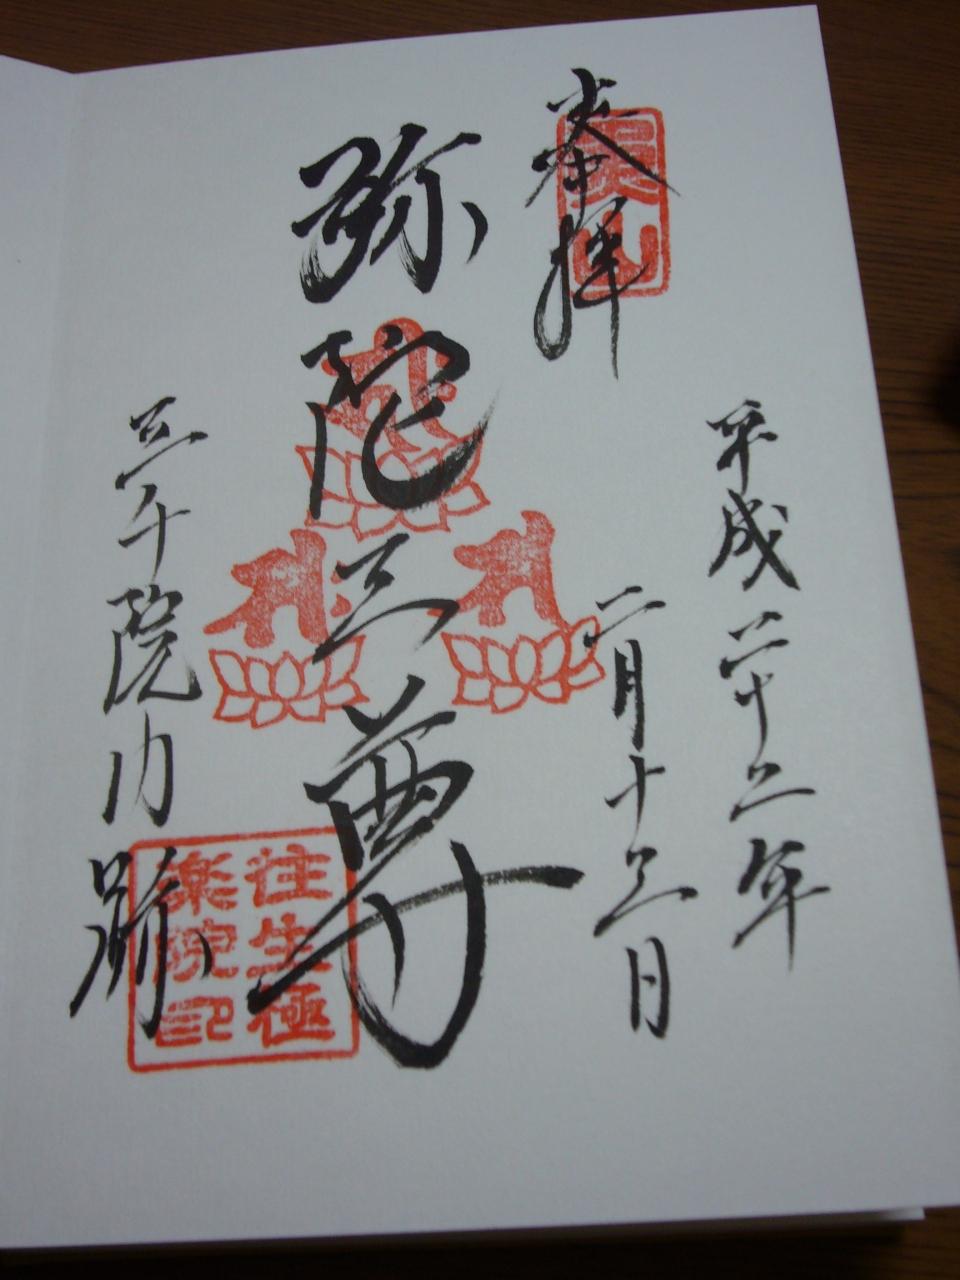 平成二十二年
二月十三日
奉拝
魚山
弥陀三尊
三千院門跡
往生極
楽院印